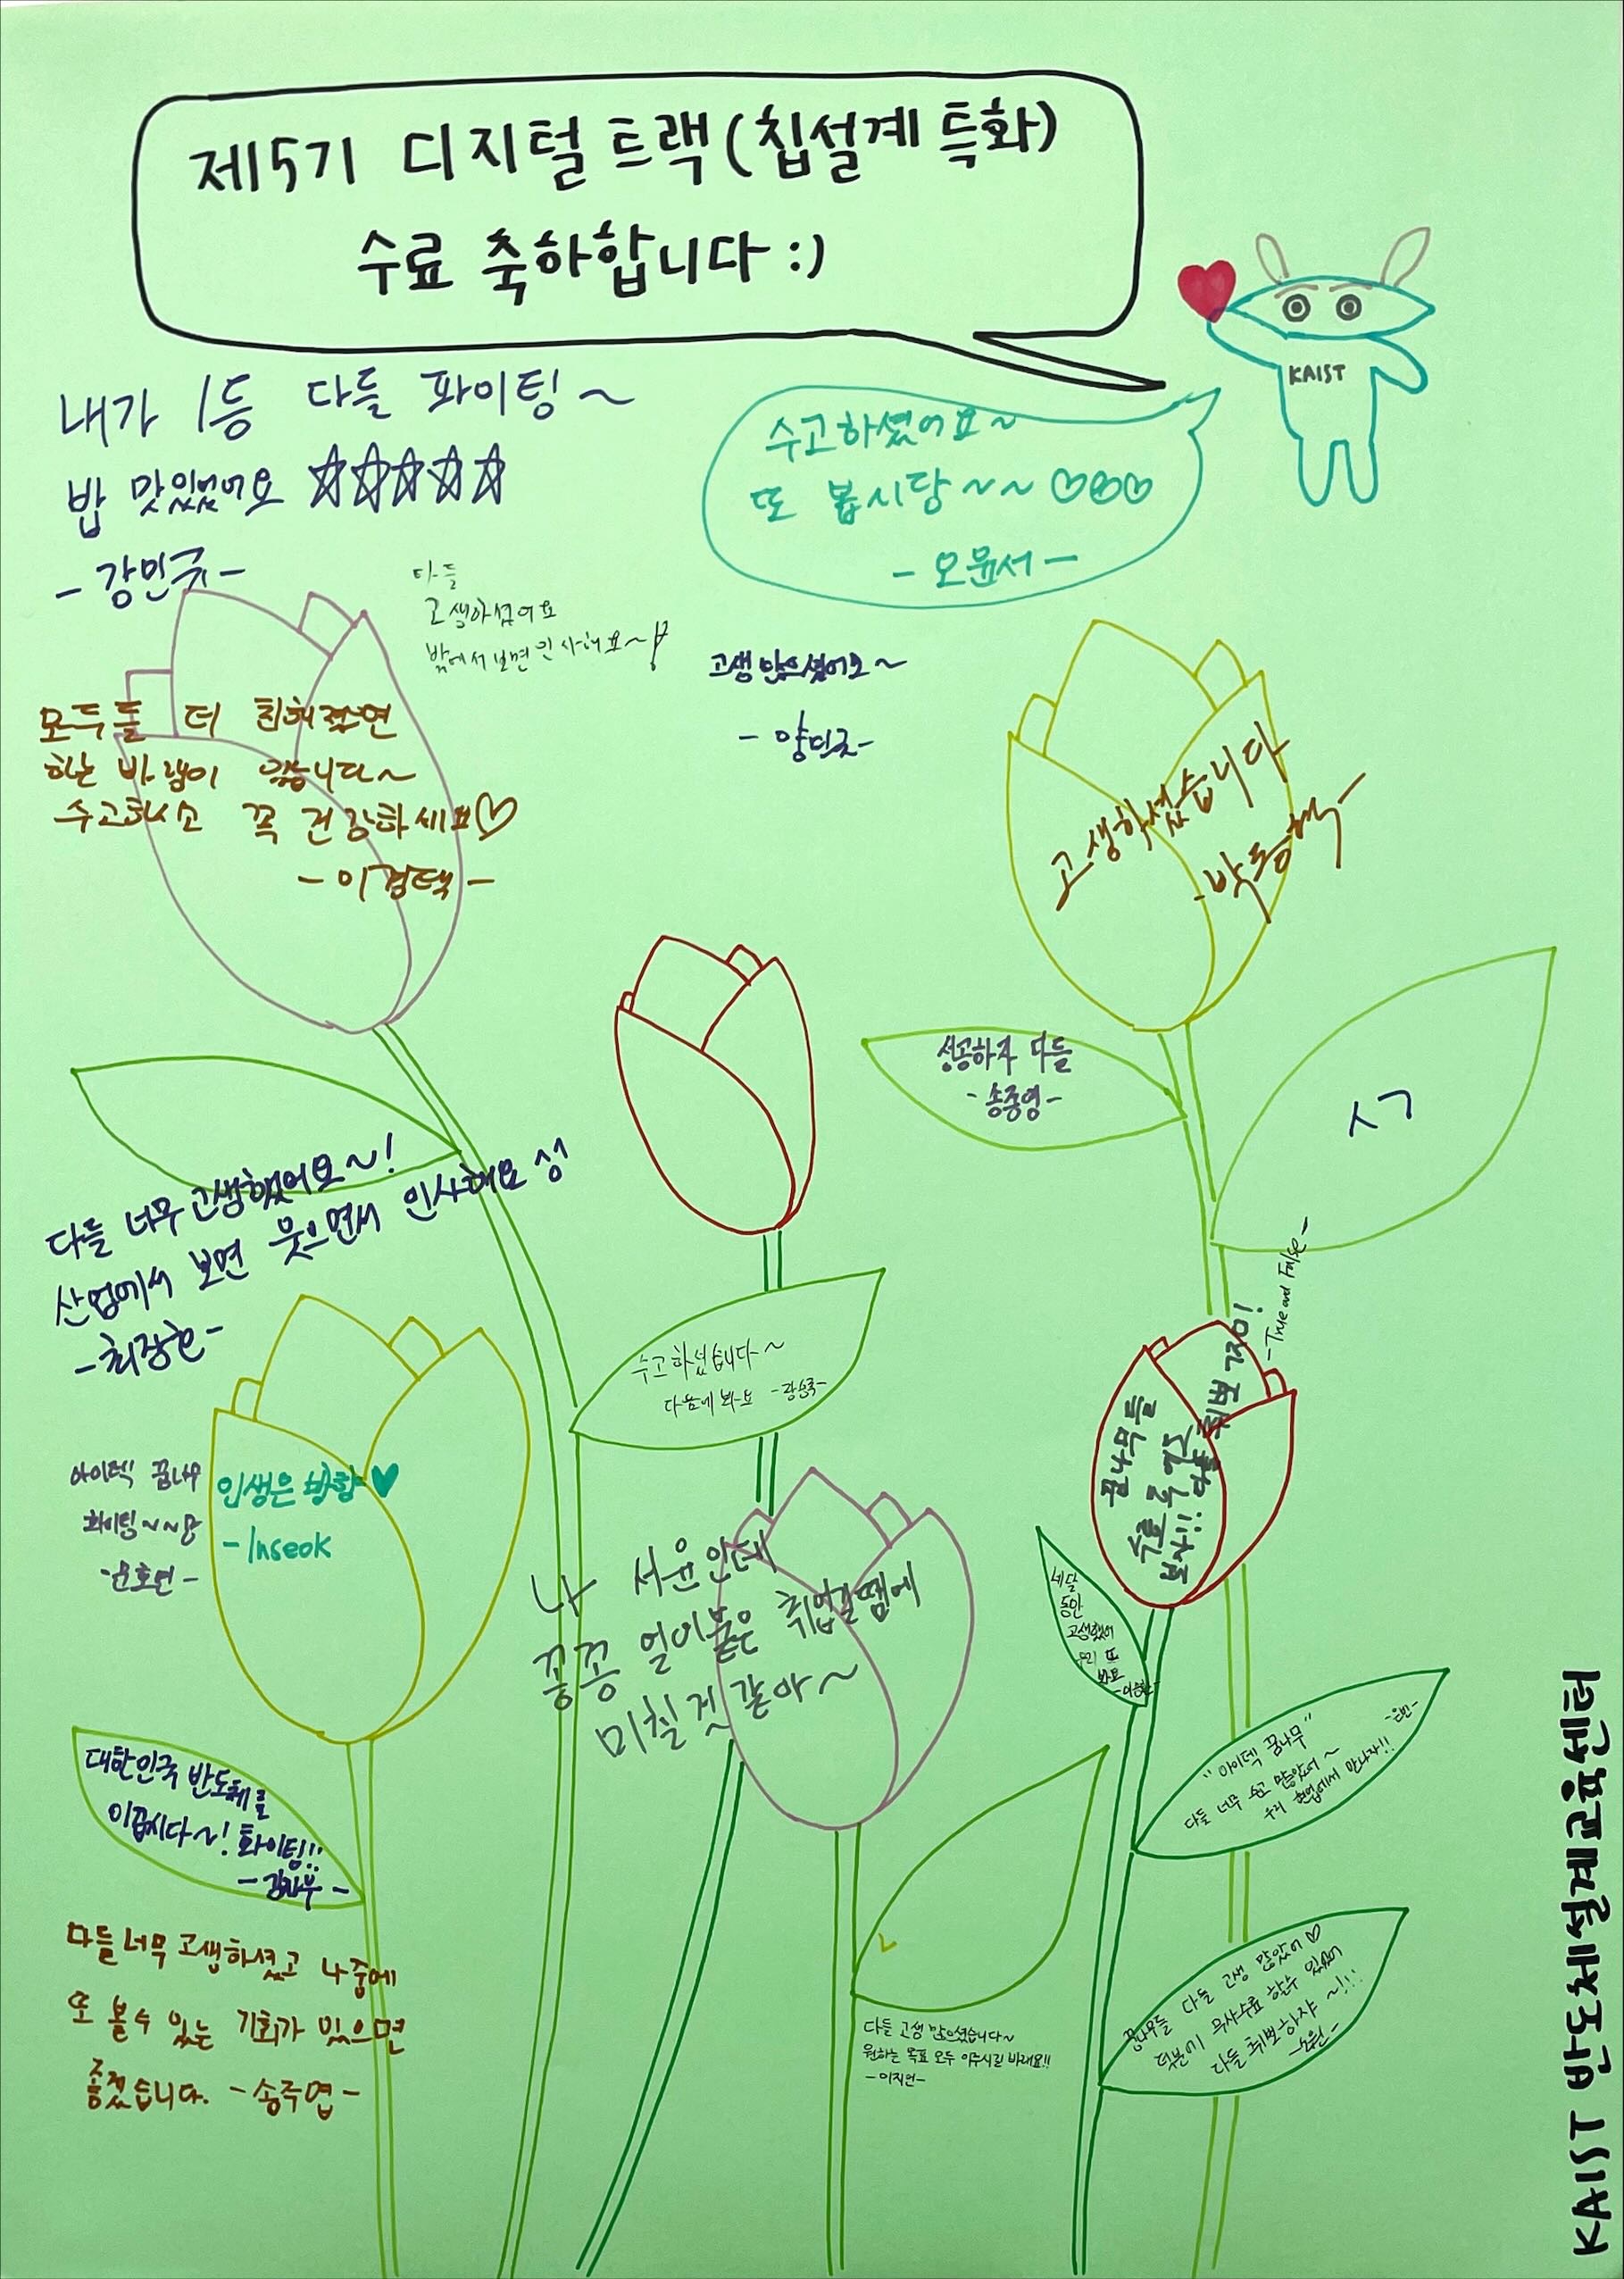 제5기 디지털 트랙(칩설계 특화)
수료 축하합니다 :)
KAIST
내가 1등 다들 파이팅~
밥 맛있었어요 ☆☆☆☆☆
-강민국-
수고하셨어요~
또 봅시당~~ ♡♡♡
-오윤서-
다들
고생하셨어요
밖에서 보면 인사해요~!
고생 많으셨어요~
모두들 더 친해졌으면
하는 바램이 있습니다~
수고하시소 꼭 건강하세요♡
고생하셨습니다
성공하자 다들
-송중영-
ㅅㄱ
다들 너무 고생했어요~!
산업에서 보면 웃으면서 인사해요 성
-최장현-
수고하셨습니다~
다음에 봐요
-True and False-
꿈나무들
취뽀 가자!!
아이텍 꿈나무
화이팅~~
인생은 방향♥
-Inseok
나 서윤인데
꽁꽁 얼어붙은 취업길땜에
미칠 것 같아~
세달
동안
고생했어
우리 또
봐요
"아이텍 꿈나무"
다들 너무 수고 많았어~
우리 현업에서 만나자!!
-은빈-
대한민국 반도체를
이끕시다~! 화이팅!!
다들 너무 고생하셨고 나중에
또 볼수 있는 기회가 있으면
좋겠습니다. -송주엽-
꿈나무들 다들 고생 많았어♡
덕분에 무사수료 할수 있었어
다들 취뽀하쟈~!!!
다들 고생 많으셨습니다~
원하는 목표 모두 이루시길 바래요!!
-이지언-
KAIST 반도체설계교육센터